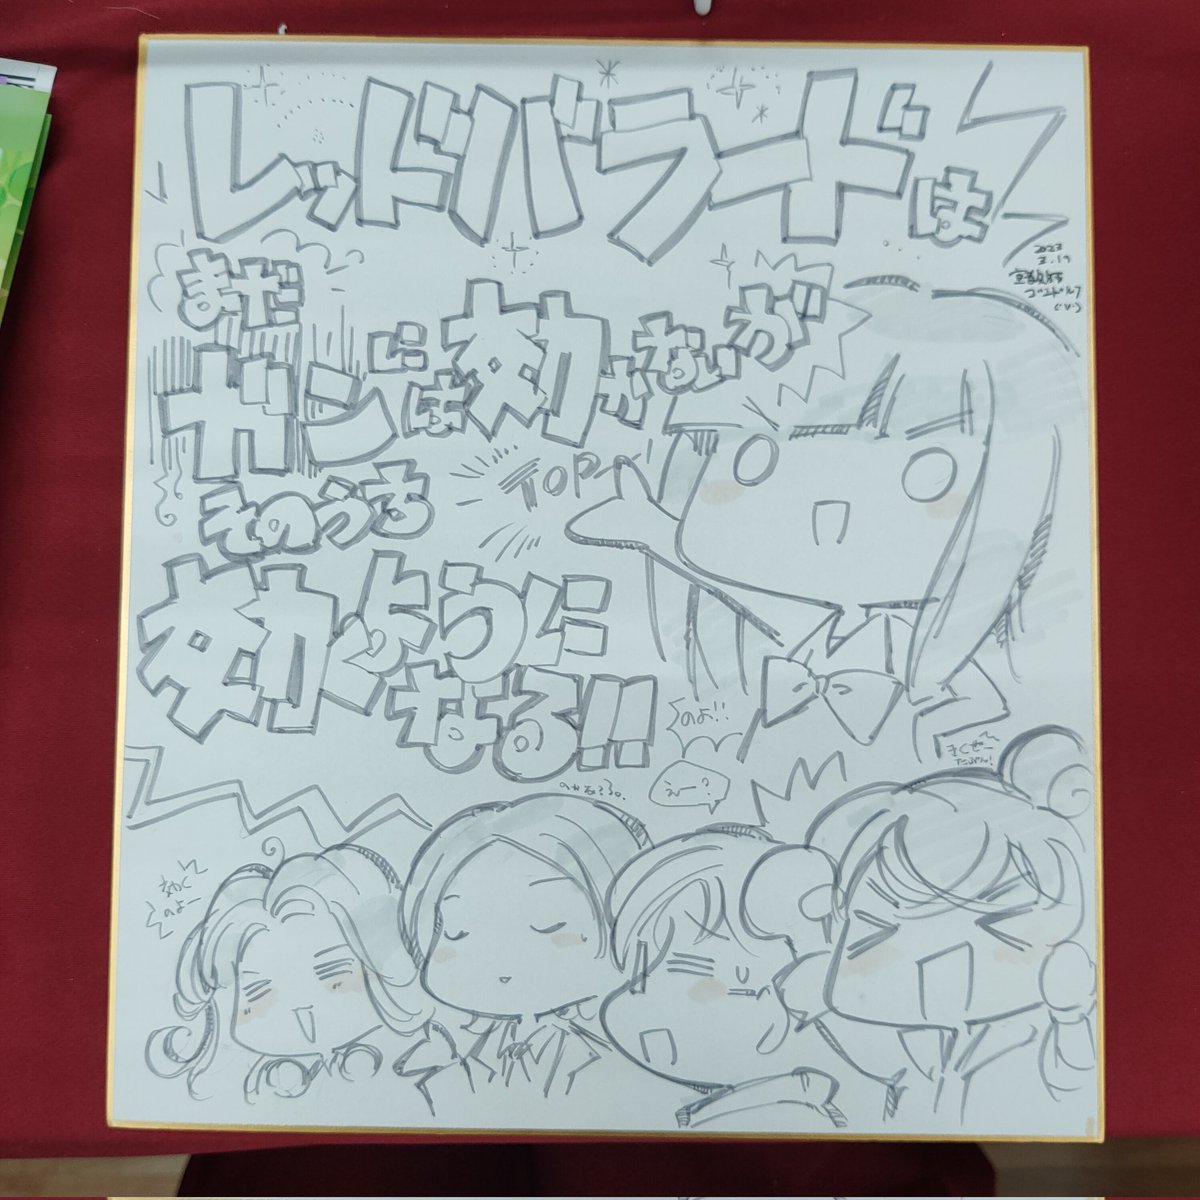 レッドバラードは
まだ
ガンには効かないが
そのうち
効くように
なる!!
TOP
2023
3.19
のよ!!
えー?
きくぜー
たぶん!
効く
のよー